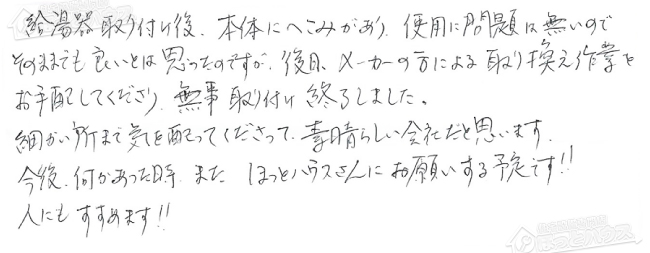 給湯器取り付け後、本体にへこみがあり、使用に問題は無いので
そのままでも良いとは思ったのですが、後日、メーカーの方による取り換え作業を
お手配してくださり、無事取り付け終了しました。
細かい所まで気を配ってくださって、素晴らしい会社だと思います。
今後、何かあった時、また ほっとハウスさんにお願いする予定です!!
人にもすすめます!!
ほっとハウス